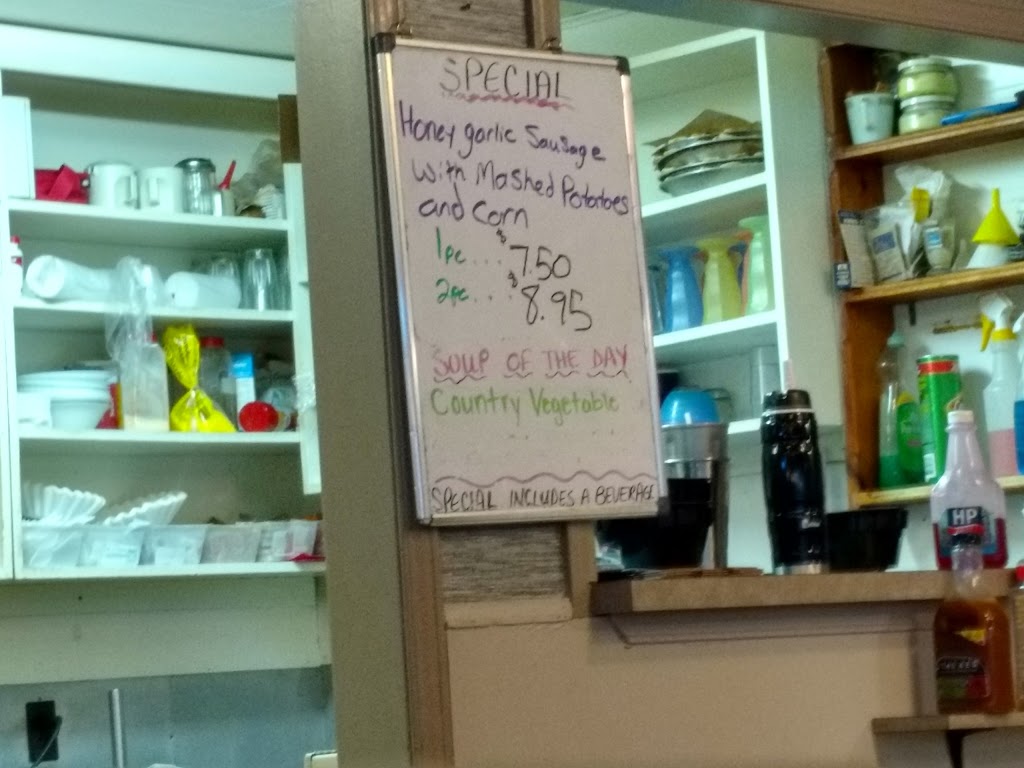 SPECIAL
Honey garlic Sausage
with Mashed Potatoes
and Corn
1pc... $7.50
2pc... $8.95
SOUP OF THE DAY
Country Vegetable
SPECIAL INCLUDES A BEVERAGE
HP